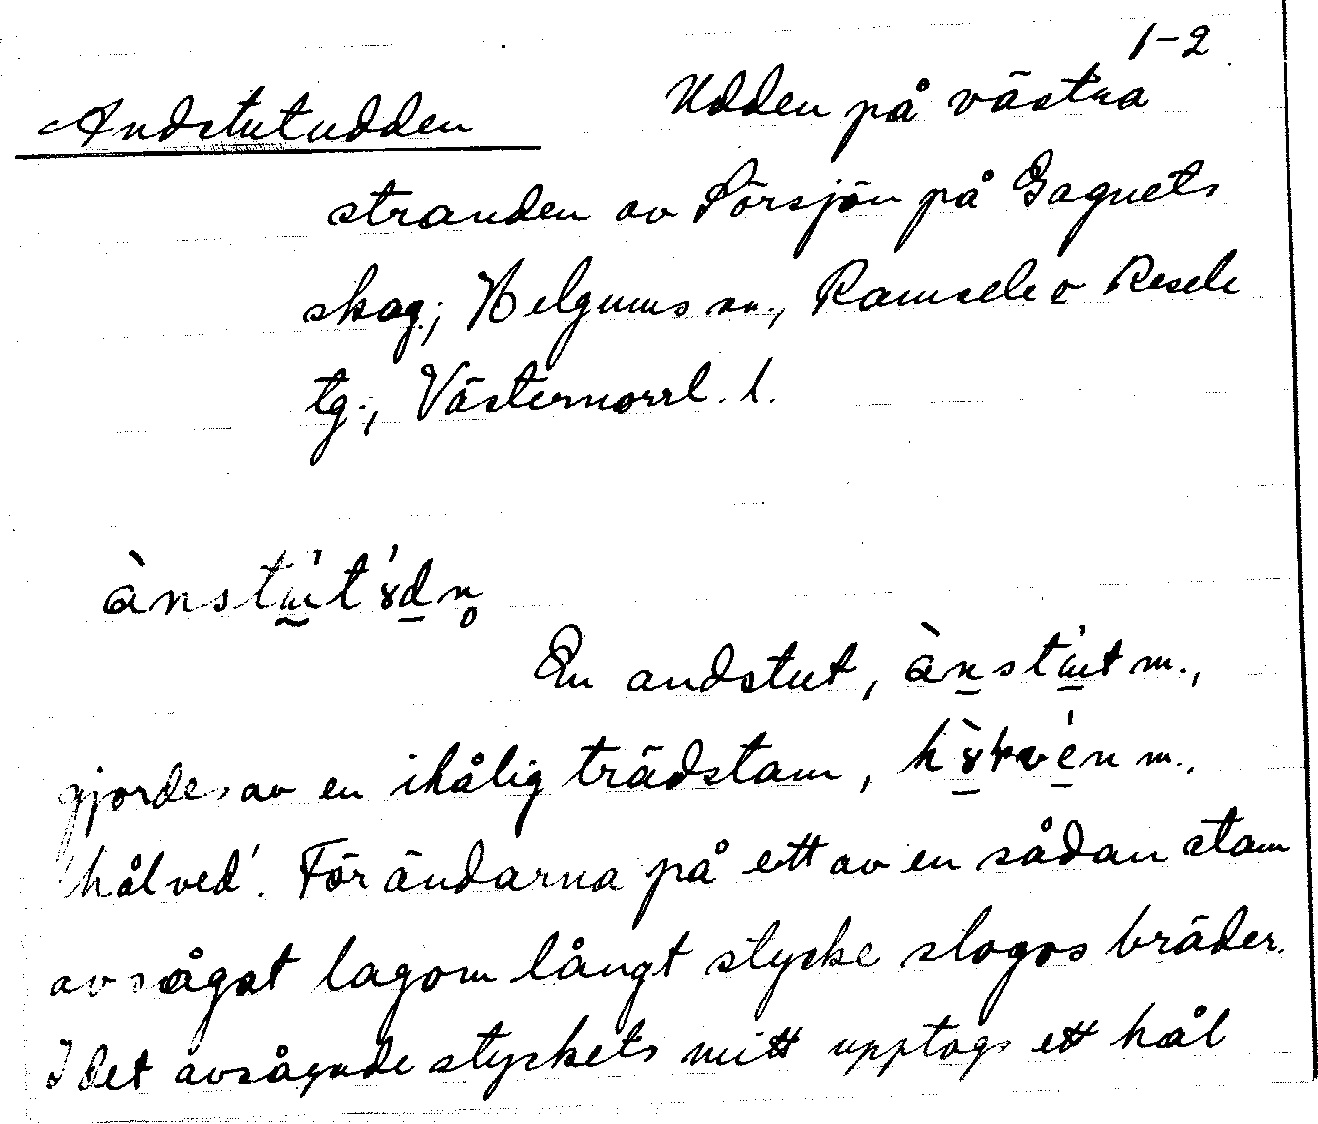 1-2
Andstutudden Udden på västra
stranden av Sörsjön på Gagnets
skog; Helgums sn., Ramsele o Resele
tg., Västernorrl. l.
En andstut, m.,
gjordes av en ihålig trädstam, m.,
'hålved'. För ändarna på ett av en sådan stam
avsågat lagom långt stycke slogos bräder.
I det avsågade styckets mitt upptogs ett hål